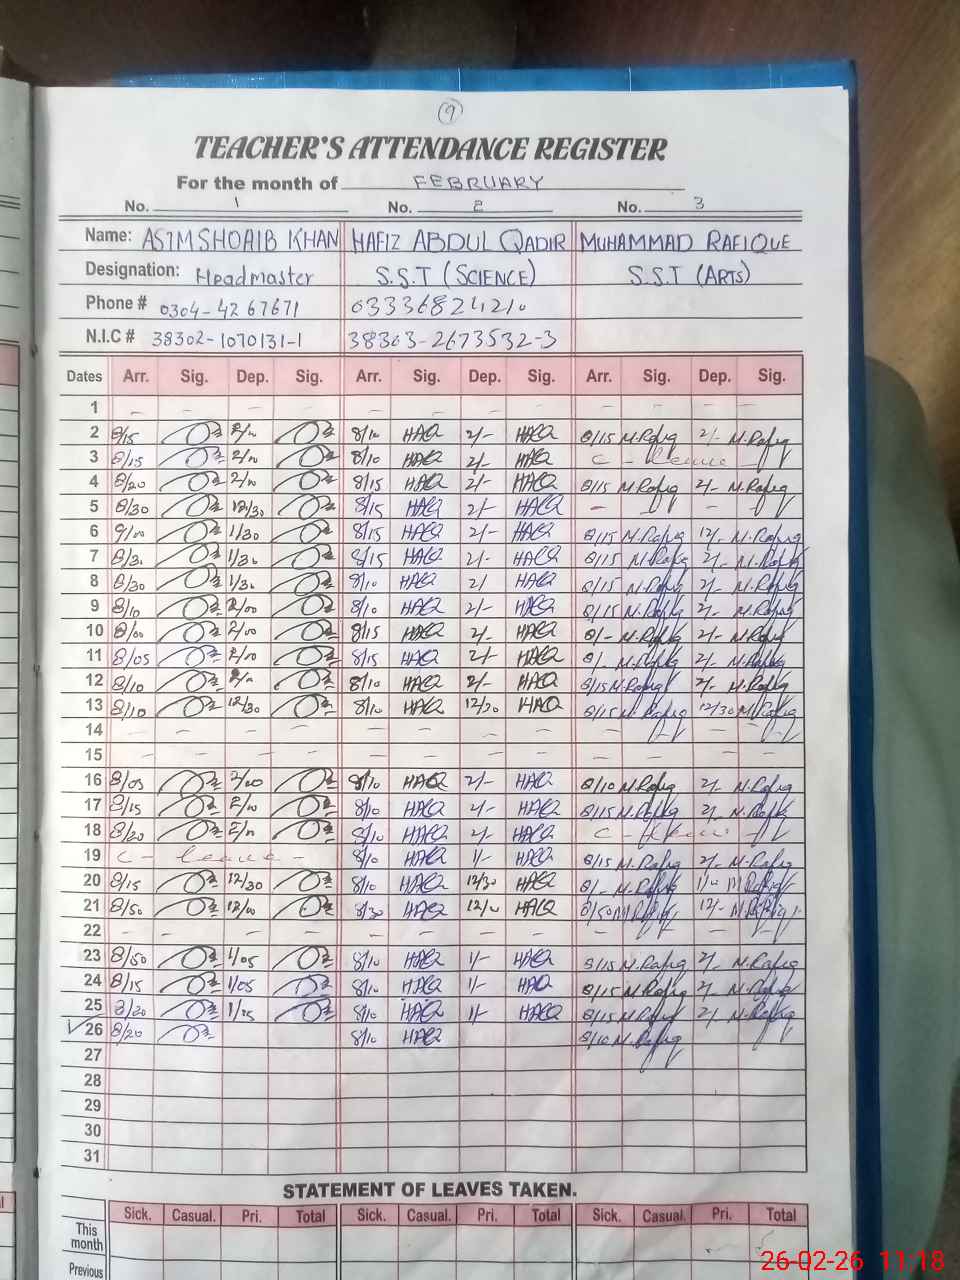 9
TEACHER'S ATTENDANCE REGISTER
For the month of FEBRUARY
No. 1 No. 2 No. 3
Name: ASIM SHOAIB KHAN HAFIZ ABDUL QADIR MUHAMMAD RAFIQUE
Designation: Headmaster S.S.T (SCIENCE) S.S.T (ARTS)
Phone # 0304-4267671 03336824210
N.I.C # 38302-1070131-1 38303-2673532-3
Dates Arr. Sig. Dep. Sig. Arr. Sig. Dep. Sig. Arr. Sig. Dep. Sig.
1 – – – – – – – – – – – –
2 8/15 2/00 8/10 HAQ 2/- HAQ 8/15 M.Rafiq 2/- M.Rafiq
3 8/15 2/00 8/10 HAQ 2/- HAQ C - leave -
4 8/20 2/00 8/15 HAQ 2/- HAQ 8/15 M.Rafiq 2/- M.Rafiq
5 8/30 12/30 8/15 HAQ 2/- HAQ
6 9/00 1/30 8/15 HAQ 2/- HAQ 8/15 M.Rafiq 12/- M.Rafiq
7 8/30 1/30 8/15 HAQ 2/- HAQ 8/15 M.Rafiq 2/- M.Rafiq
8 8/30 1/30 8/10 HAQ 2/ HAQ 8/15 M.Rafiq 2/- M.Rafiq
9 8/10 2/00 8/10 HAQ 2/- HAQ 8/15 M.Rafiq 2/- M.Rafiq
10 8/00 2/00 8/15 HAQ 2/- HAQ 8/- M.Rafiq 2/- M.Rafiq
11 8/05 2/00 8/15 HAQ 2/- HAQ 8/- M.Rafiq 2/- M.Rafiq
12 8/10 8/10 HAQ 2/- HAQ 8/15 M.Rafiq 2/- M.Rafiq
13 8/10 12/30 8/10 HAQ 12/30 HAQ 8/15 M.Rafiq 12/30 M.Rafiq
14 – – – – – – – – – – – –
15 – – – – – – – – – – – –
16 8/05 2/00 8/10 HAQ 2/- HAQ 8/10 M.Rafiq 2/- M.Rafiq
17 8/15 2/00 8/10 HAQ 2/- HAQ 8/15 M.Rafiq 2/- M.Rafiq
18 8/20 8/10 HAQ 2/- HAQ C - leave -
19 C - leave - 8/10 HAQ 1/- HAQ 8/15 M.Rafiq 2/- M.Rafiq
20 8/15 12/30 8/10 HAQ 12/30 HAQ 8/- M.Rafiq M.Rafiq
21 8/50 12/00 8/30 HAQ 12/0 HAQ 8/50 M.Rafiq 12/- M.Rafiq
22 – – – – – – – – – – – –
23 8/50 1/05 8/10 HAQ 1/- HAQ 8/15 M.Rafiq 2/- M.Rafiq
24 8/15 1/05 8/10 HAQ 1/- HAQ 8/15 M.Rafiq 2/- M.Rafiq
25 8/20 1/05 8/10 HAQ 1/- HAQ 8/15 M.Rafiq 2/- M.Rafiq
✓ 26 8/20 8/10 HAQ 8/10 M.Rafiq
27
28
29
30
31
STATEMENT OF LEAVES TAKEN.
Sick. Casual. Pri. Total Sick. Casual. Pri. Total Sick. Casual. Pri. Total
This month
Previous
26-02-26 11:18